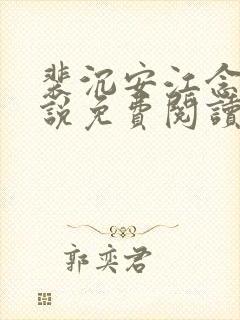 裴沉安江念
說免費閱讀
郭奕君